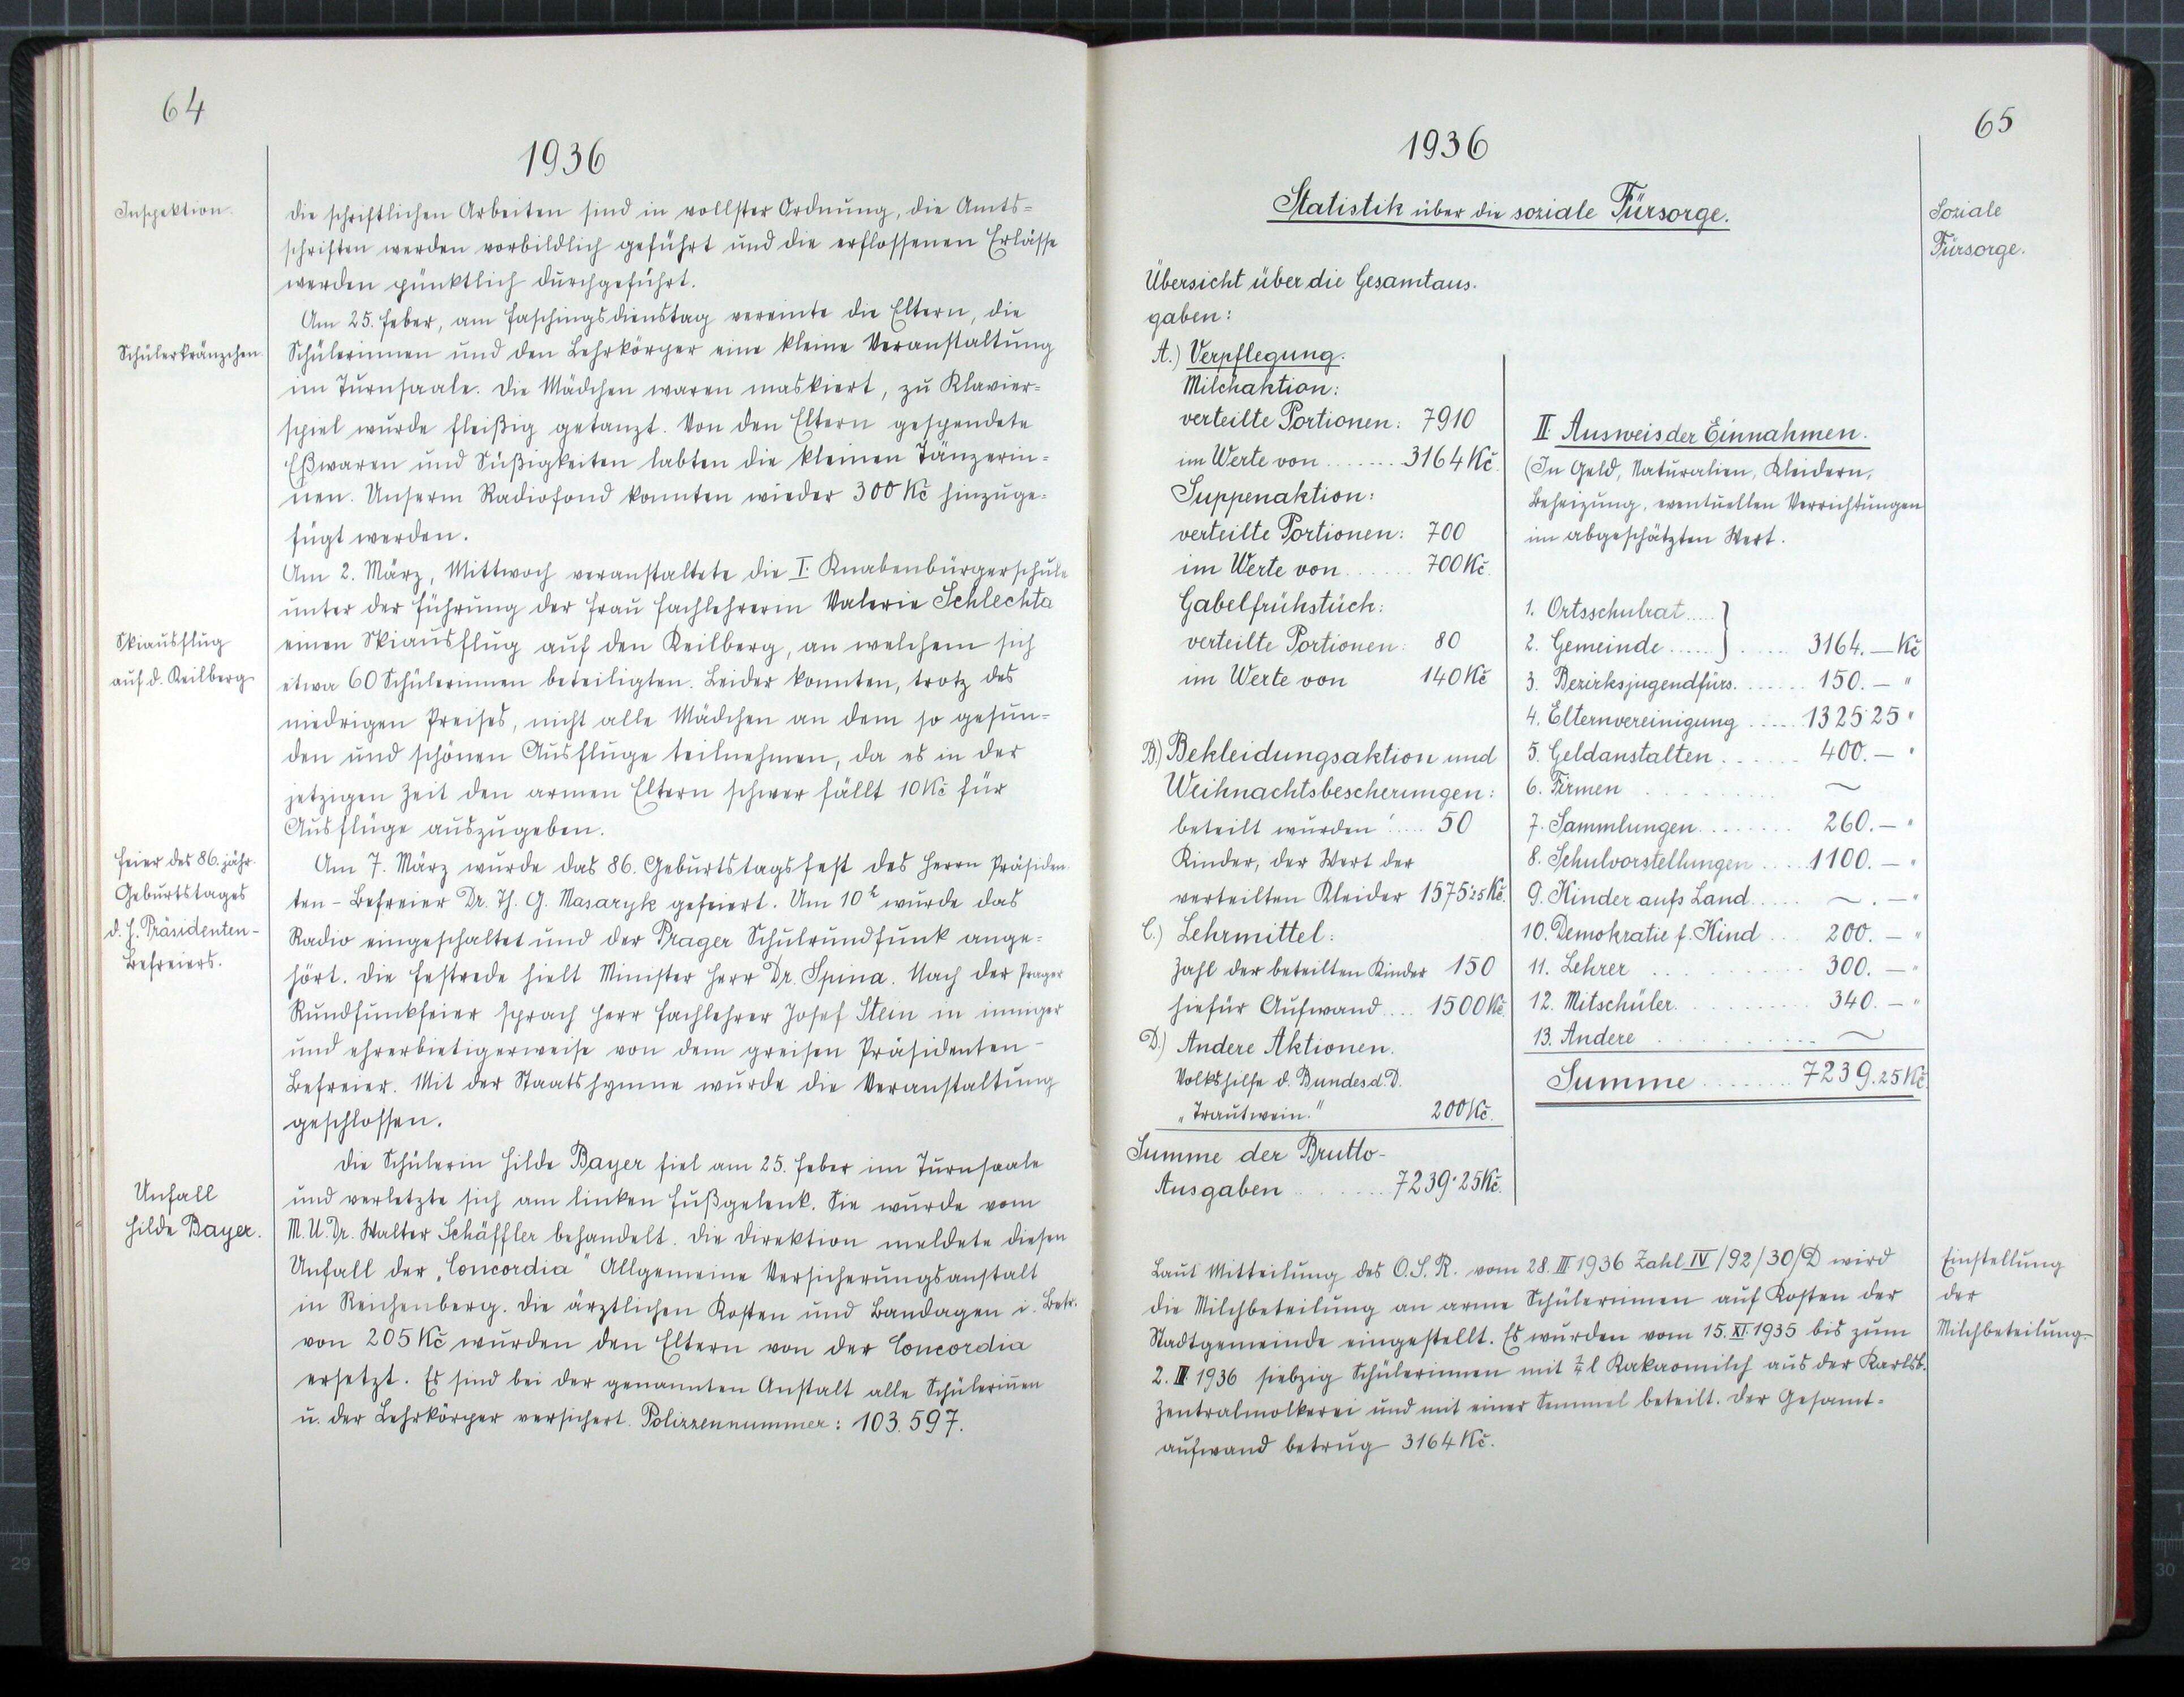 64
1936
Inspektion.
die schriftlichen Arbeiten sind in vollster Ordnung, die Amts=
schriften werden vorbildlich geführt und die erflossenen Erlässe
werden pünktlich durchgeführt.
Am 25. Feber, am Faschingsdienstag vereinte die Eltern, die
Schülerkränzchen
Schülerinnen und den Lehrkörper eine kleine Veranstaltung
im Turnsaale. Die Mädchen waren maskiert, zu Klavier=
spiel wurde fleißig getanzt. Von den Eltern gespendete
Eßwaren und Süßigkeiten labten die kleinen Tänzerin=
nen. Unserm Radiofond konnten wieder 300 Kč hinzuge=
fügt werden.
Am 2. März, Mittwoch veranstaltete die I. Knabenbürgerschule
unter der Führung der Frau Fachlehrerin Valerie Schlechta
Skiausflug
auf d. Keilberg
einen Skiausflug auf den Keilberg, an welchem sich
etwa 60 Schülerinnen beteiligten. Leider konnten, trotz des
niedrigen Preises, nicht alle Mädchen an dem so gesun=
den und schönen Ausfluge teilnehmen, da es in der
jetzigen Zeit den armen Eltern schwer fällt 10 Kč für
Ausflüge auszugeben.
Feier des 86. jähr.
Geburtstages
d. H. Präsidenten-
Befreiers.
Am 7. März wurde das 86. Geburtstagsfest des Herrn Präsiden
ten - Befreier Dr. Th. G. Masaryk gefeiert. Um 10h wurde das
Radio eingeschaltet und der Prager Schulrundfunk ange=
hört. Die Festrede hielt Minister Herr Dr. Spina. Nach der Prager
Rundfunkfeier sprach Herr Fachlehrer Josef Stein in inniger
und ehrerbietigerweise von dem greisen Präsidenten-
Befreier. Mit der Staatshymne wurde die Veranstaltung
geschlossen.
Unfall
Hilde Bayer.
Die Schülerin Hilde Bayer fiel am 25. Feber im Turnsaale
und verletzte sich am linken Fußgelenk. Sie wurde vom
M.U.Dr. Walter Schäffler behandelt. Die Direktion meldete diesen
Unfall der „Concordia" Allgemeine Versicherungsanstalt
in Reichenberg. Die ärztlichen Kosten und Bandagen i. Betr.
von 205 Kč wurden den Eltern von der Concordia
ersetzt. Es sind bei der genannten Anstalt alle Schülerin̄en
u. der Lehrkörper versichert. Polizzennummer: 103.597.
65
1936
Statistik über die soziale Fürsorge.
Soziale
Fürsorge.
Übersicht über die Gesamtaus.
gaben:
A.) Verpflegung.
Milchaktion:
verteilte Portionen: 7910
im Werte von ....... 3164 Kč.
Suppenaktion:
verteilte Portionen: 700
im Werte von ...... 700 Kč.
Gabelfrühstück:
verteilte Portionen: 80
im Werte von 140 Kč
B.) Bekleidungsaktion und
Weihnachtsbescherungen:
beteilt wurden ..... 50
Kinder, der Wert der
verteilten Kleider 1575·25 Kč.
C.) Lehrmittel:
Zahl der beteilten Kinder 150
hiefür Aufwand .... 1500 Kč.
D.) Andere Aktionen.
Volkshilfe d. Bundes d. D.
„Trautwein." 200 Kč.
Summe der Brutto-
Ausgaben ........ 7239·25 Kč.
II. Ausweis der Einnahmen.
(In Geld, Naturalien, Kleidern,
Beheizung, eventuellen Verrichtungen
im abgeschätzten Wert.
1. Ortsschulrat ..... }
2. Gemeinde ...... } ..... 3164.— Kč
3. Bezirksjugendfürs. ...... 150.— "
4. Elternvereinigung ..... 1325·25 "
5. Geldanstalten ...... 400.— "
6. Firmen .......... ~
7. Sammlungen ........ 260.— "
8. Schulvorstellungen .... 1100.— "
9. Kinder aufs Land ..... ~.— "
10. Demokratie f. Kind ... 200.— "
11. Lehrer .......... 300.— "
12. Mitschüler ......... 340.— "
13. Andere .......... ~
Summe ........ 7239.25 Kč
Laut Mitteilung des O.S.R. vom 28. III. 1936 Zahl IV/92/30/D wird
die Milchbeteilung an arme Schülerinnen auf Kosten der
Stadtgemeinde eingestellt. Es wurden vom 15. XI. 1935 bis zum
2. III. 1936 siebzig Schülerinnen mit l Kakaomilch aus der Karlsb.
Zentralmolkerei und mit einer Semmel beteilt. Der Gesamt=
aufwand betrug 3164 Kč.
Einstellung
der
Milchbeteilung.
29
30